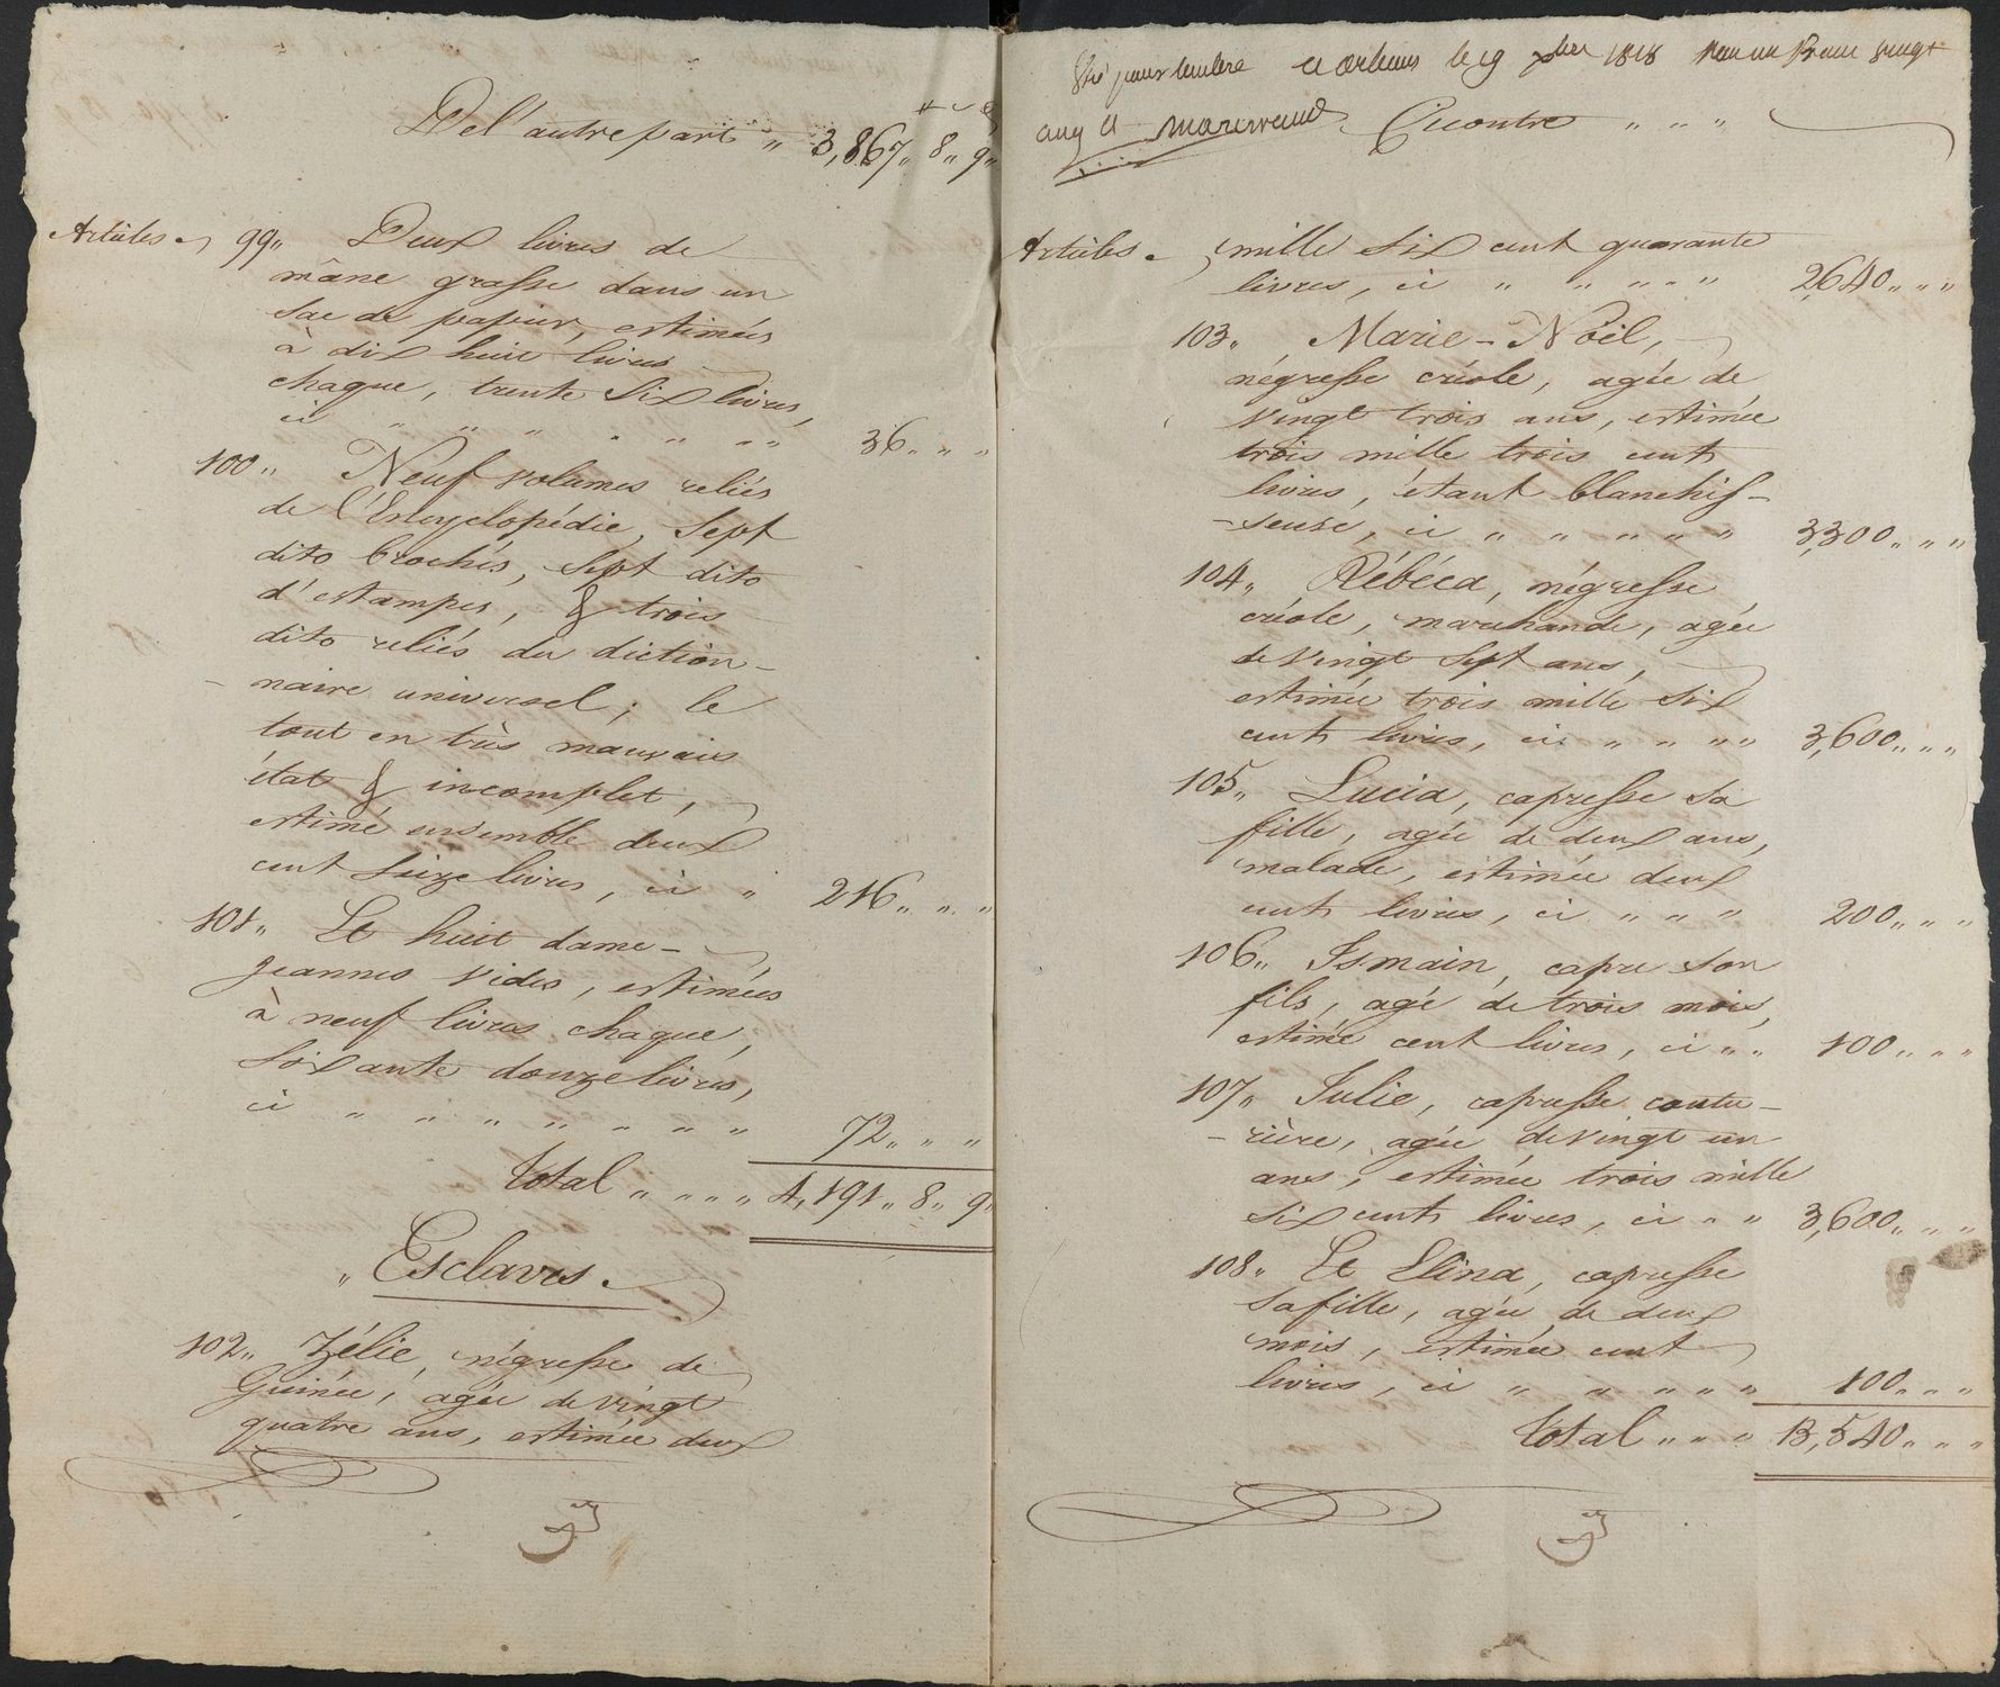 De l'autre part " 3,867" 8" 9"
Articles. 99" Deux livres de
mâne grasse dans un
sac de papier, estimés
à dix huit livres
chaque, trente six livres,
ci " " " " " " " 36" " "
100" Neuf volumes reliés
de l'Encyclopédie, Sept
dito brochés, Sept dito
d'estampes, & trois
dito reliés du diction-
-naire universel; le
tout en très mauvais
état & incomplet,
estimé ensemble deux
cent seize livres, ci " 216" " "
101" Et huit dame-
jeannes vides, estimées
à neuf livres chaque,
soixante douze livres,
ci " " " " " " " 72" " "
Total " " " " 4,191" 8" 9"
" Esclaves.
102" Zélie, négresse de
Guinée, agée de vingt
quatre ans, estimée deux
pour timbre a orleans le 19 xbre 1818 un franc vingt
cinq ct
Ci contre " " "
Articles. mille six cent quarante
livres, ci " " " " " 2,640" " "
103" Marie-Noël,
négresse créole, agée de
vingt trois ans, estimée
trois mille trois cents
livres, étant blanchis-
-seuse, ci " " " " " 3,300" " "
104" Rébéca, négresse
créole, marchande, agée
de vingt sept ans,
estimée trois mille six
cents livres, ci " " " " 3,600" " "
105" Lucia, capresse sa
fille, agée de deux ans,
malade, estimée deux
cents livres, ci " " " 200" " "
106" Ismain, capre son
fils, agé de trois mois,
estimé cent livres, ci " " 100" " "
107" Julie, capresse coutu-
-rière, agée de vingt un
ans, estimée trois mille
six cents livres, ci " " 3,600" " "
108" Et Elina, capresse
sa fille, agée de deux
mois, estimée cent
livres, ci " " " " " 100" " "
Total " " " 13,540" " "